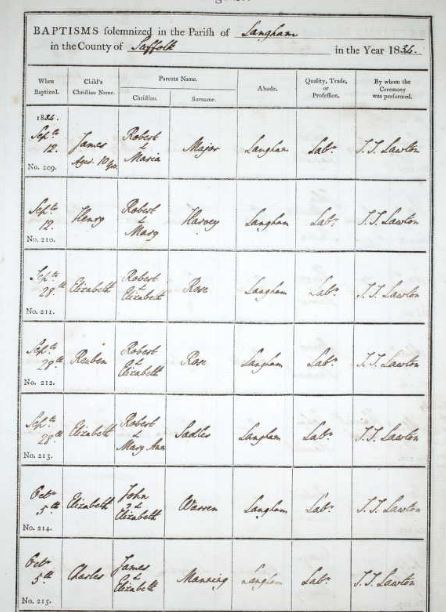 BAPTISMS solemnized in the Parish of Langham
in the County of Suffolk in the Year 1834.
When Baptized. Child's Christian Name. Parents Name. Christian. Surname. Abode. Quality, Trade, or Profession. By whom the Ceremony was performed.
1834.
Septr 12. James Aged 10 yrs. Robert & Maria Major Langham Labr. J. J. Lawton
No. 209.
Septr 12. Henry Robert & Mary Harvey Langham Labr. J. J. Lawton
No. 210.
Septr 28th Elizabeth Robert & Elizabeth Rose Langham Labr. J. J. Lawton
No. 211.
Septr 28th Reuben Robert & Elizabeth Rose Langham Labr. J. J. Lawton
No. 212.
Septr 28th Elizabeth Robert & Mary Ann Sadler Langham Labr. J. J. Lawton
No. 213.
Octr 5th Elizabeth John & Elizabeth Warren Langham Labr. J. J. Lawton
No. 214.
Octr 5th Charles James & Elizabeth Manning Langham Labr. J. J. Lawton
No. 215.